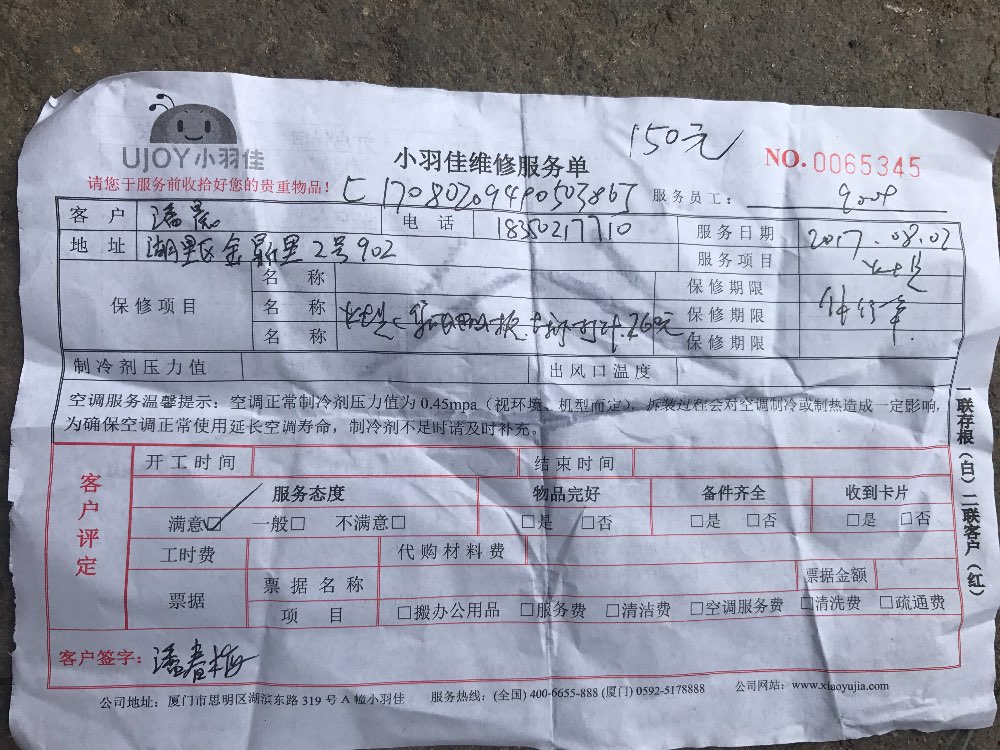 UJOY小羽佳
小羽佳维修服务单
150元
NO. 0065345
请您于服务前收拾好您的贵重物品！
服务员工：
客 户 潘 电 话 18350217710 服务日期 2017.08.02
地 址 湖里区金 里2号902 服务项目
保修项目
名 称 保修期限
名 称 保修期限
名 称 保修期限
制冷剂压力值 出风口温度
空调服务温馨提示：空调正常制冷剂压力值为 0.45mpa（视环境、机型而定），拆装过程会对空调制冷或制热造成一定影响，
为确保空调正常使用延长空调寿命，制冷剂不足时请及时补充。
客户评定
开工时间 结束时间
服务态度 物品完好 备件齐全 收到卡片
满意☑ 一般□ 不满意□ □是 □否 □是 □否 □是 □否
工时费 代购材料费
票据 票据名称 票据金额
项 目 □搬办公用品 □服务费 □清洁费 □空调服务费 □清洗费 □疏通费
客户签字：潘春梅
公司地址：厦门市思明区湖滨东路 319 号 A 幢小羽佳 服务热线：(全国) 400-6655-888 (厦门) 0592-5178888 公司网站：www.xiaoyujia.com
一联存根（白）二联客户（红）